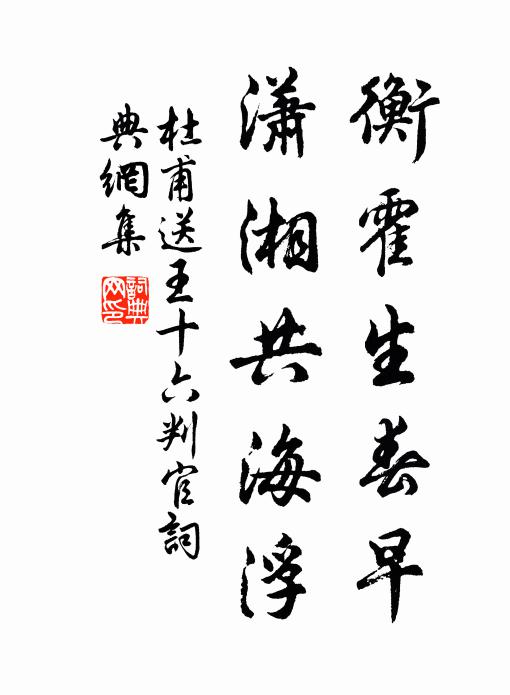 衡霍生春早
瀟湘共海浮
杜甫送王十六判官詞
典網集
詞典
网印